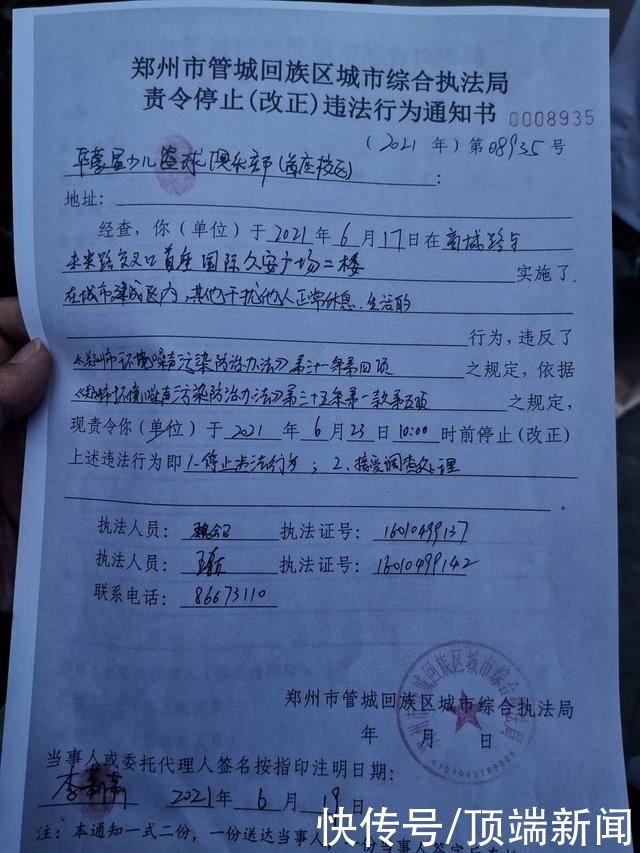 郑州市管城回族区城市综合执法局
责令停止(改正)违法行为通知书 0008935
(2021 年)第08935号
少儿篮球俱乐部(首座校区):
地址:
经查,你(单位)于2021年6月17日在商城路与
未来路交叉口首座国际久安广场二楼 实施了
在城市建成区内,其他干扰他人正常休息、生活的
行为,违反了
《郑州市环境噪声污染防治办法》第三十一条第四项 之规定,依据
《郑州市环境噪声污染防治办法》第三十五条第一款第五项 之规定,
现责令你(单位)于2021年6月23日10:00时前停止(改正)
上述违法行为即1.停止违法行为;2、接受调查处理
。
执法人员: 执法证号:16010499137
执法人员: 执法证号:16010499142
联系电话:86673110
郑州市管城回族区城市综合执法局
年 月 日
郑州市管城回族区城市综合执法局
4101040169920
当事人或委托代理人签名按指印注明日期:
李 2021年6月19日
注:本通知一式二份,一份送达当事人,
快传号/顶端新闻